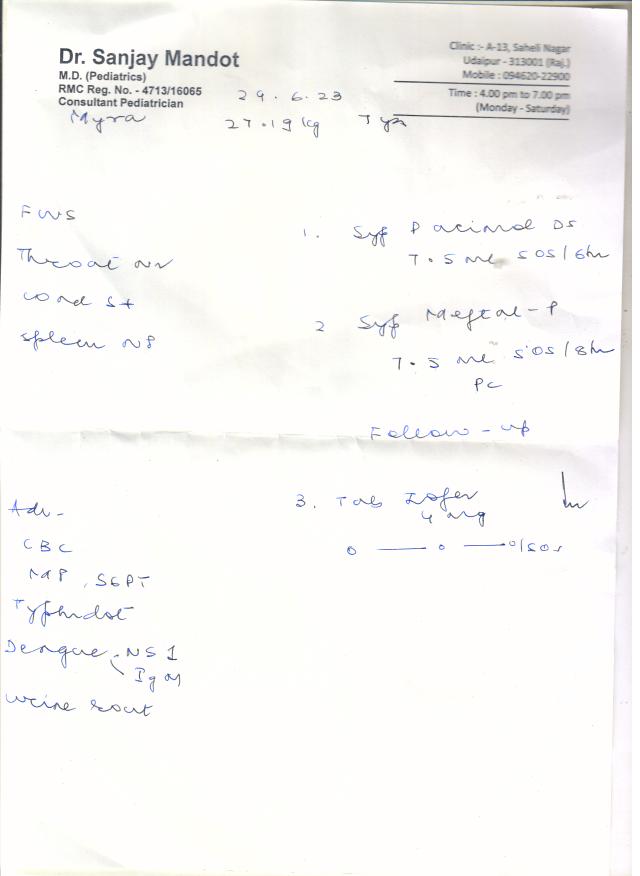 Dr. Sanjay Mandot
M.D. (Pediatrics)
RMC Reg. No. - 4713/16065
Consultant Pediatrician
Clinic :- A-13, Saheli Nagar
Udaipur - 313001 (Raj.)
Mobile : 094620-22900
Time : 4.00 pm to 7.00 pm
(Monday - Saturday)
29.6.23
Myra 27.19 kg 7 yr
FWS
Throat
cond S+
spleen NP
1. Syp Pacimol DS
7.5 ml SOS/6hr
2 Syp Meftal-P
7.5 ml SOS/8hr
PC
Follow-up
3. Tab Zofer
4 mg
o — o — o/SOS
Adv-
CBC
MP, SGPT
Typhidot
Dengue - NS1
IgM
urine rout